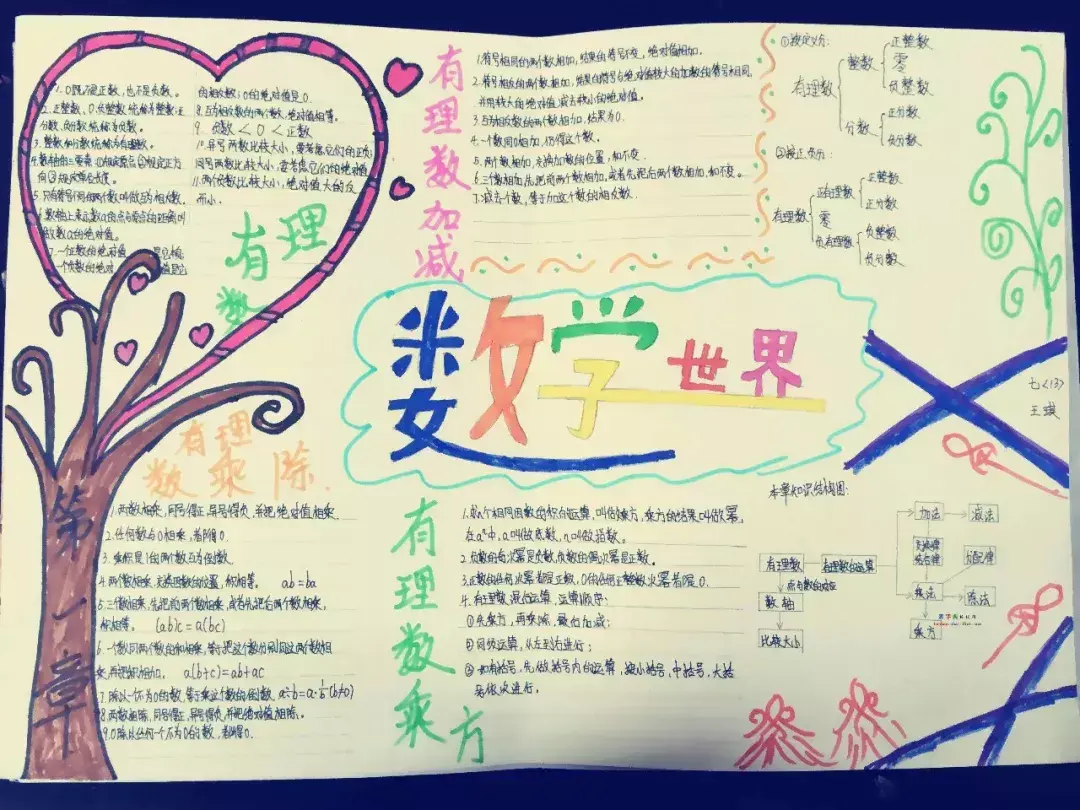 数学世界
第一章
有理数
1. 0既不是正数，也不是负数。
2. 正整数、0、负整数统称为整数；正
分数、负分数统称为分数。
3. 整数和分数统称为有理数。
4. 数轴的三要素：①原点②规定正方
向③规定单位长度。
5. 只有符号不同的两个数叫做互为相反数。
6. 数轴上表示数a的点与原点的距离叫
做数a的绝对值。
7. 一个正数的绝对值是它
一个负数的绝对值是它
的相反数；0的绝对值是0.
8. 互为相反数的两个数，绝对值相等。
9. 负数＜0＜正数
10. 异号两数比较大小，要考虑它们的正负；
同号两数比较大小，要考虑它们的绝对值
11. 两个负数比较大小，绝对值大的反
而小.
有理数加减
1. 符号相同的两个数相加，结果的符号不变，绝对值相加。
2. 符号相反的两个数相加，结果的符号与绝对值较大的加数的符号相同，
并用较大的绝对值减去较小的绝对值。
3. 互为相反数的两个数相加，结果为0.
4. 一个数同0相加，仍得这个数。
5. 两个数相加，交换加数的位置，和不变.
6. 三个数相加，先把前两个数相加，或者先把后两个数相加，和不变。
7. 减去个数，等于加这个数的相反数.
①按定义分：
有理数
整数
正整数
零
负整数
分数
正分数
负分数
②按正负分：
有理数
正有理数
正整数
正分数
零
负有理数
负整数
负分数
七<13>
王琪
有理数乘除
1. 两数相乘，同号得正，异号得负，并把绝对值相乘.
2. 任何数与0相乘，都得0.
3. 乘积是1的两个数互为倒数.
4. 两个数相乘，交换因数的位置，积相等。 ab=ba
5. 三个数相乘，先把前两个数相乘，或者先把后两个数相乘，
积相等。 (ab)c=a(bc)
6. 一个数同两个数的和相乘，等于把这个数分别同这两个数相
乘，再把积相加。 a(b+c)=ab+ac
7. 除以一个不为0的数，等于乘这个数的倒数. a÷b=a·1/b(b≠0)
8. 两数相除，同号得正，异号得负，并把绝对值相除。
9. 0除以任何一个不为0的数，都得0.
有理数乘方
1. 求n个相同因数的积的运算，叫做乘方，乘方的结果叫做幂，
在aⁿ中，a叫做底数，n叫做指数。
2. 负数的奇次幂是负数，负数的偶次幂是正数。
3. 正数的任何次幂都是正数，0的任何正整数次幂都是0.
4. 有理数混合运算，运算顺序：
①先乘方，再乘除，最后加减；
②同级运算，从左到右进行；
③如有括号，先做括号内的运算，按小括号，中括号，大括
号依次进行。
本章知识结构图：
有理数
点与数的对应
数轴
比较大小
有理数的运算
加法
减法
交换律
结合律
分配律
乘法
除法
乘方